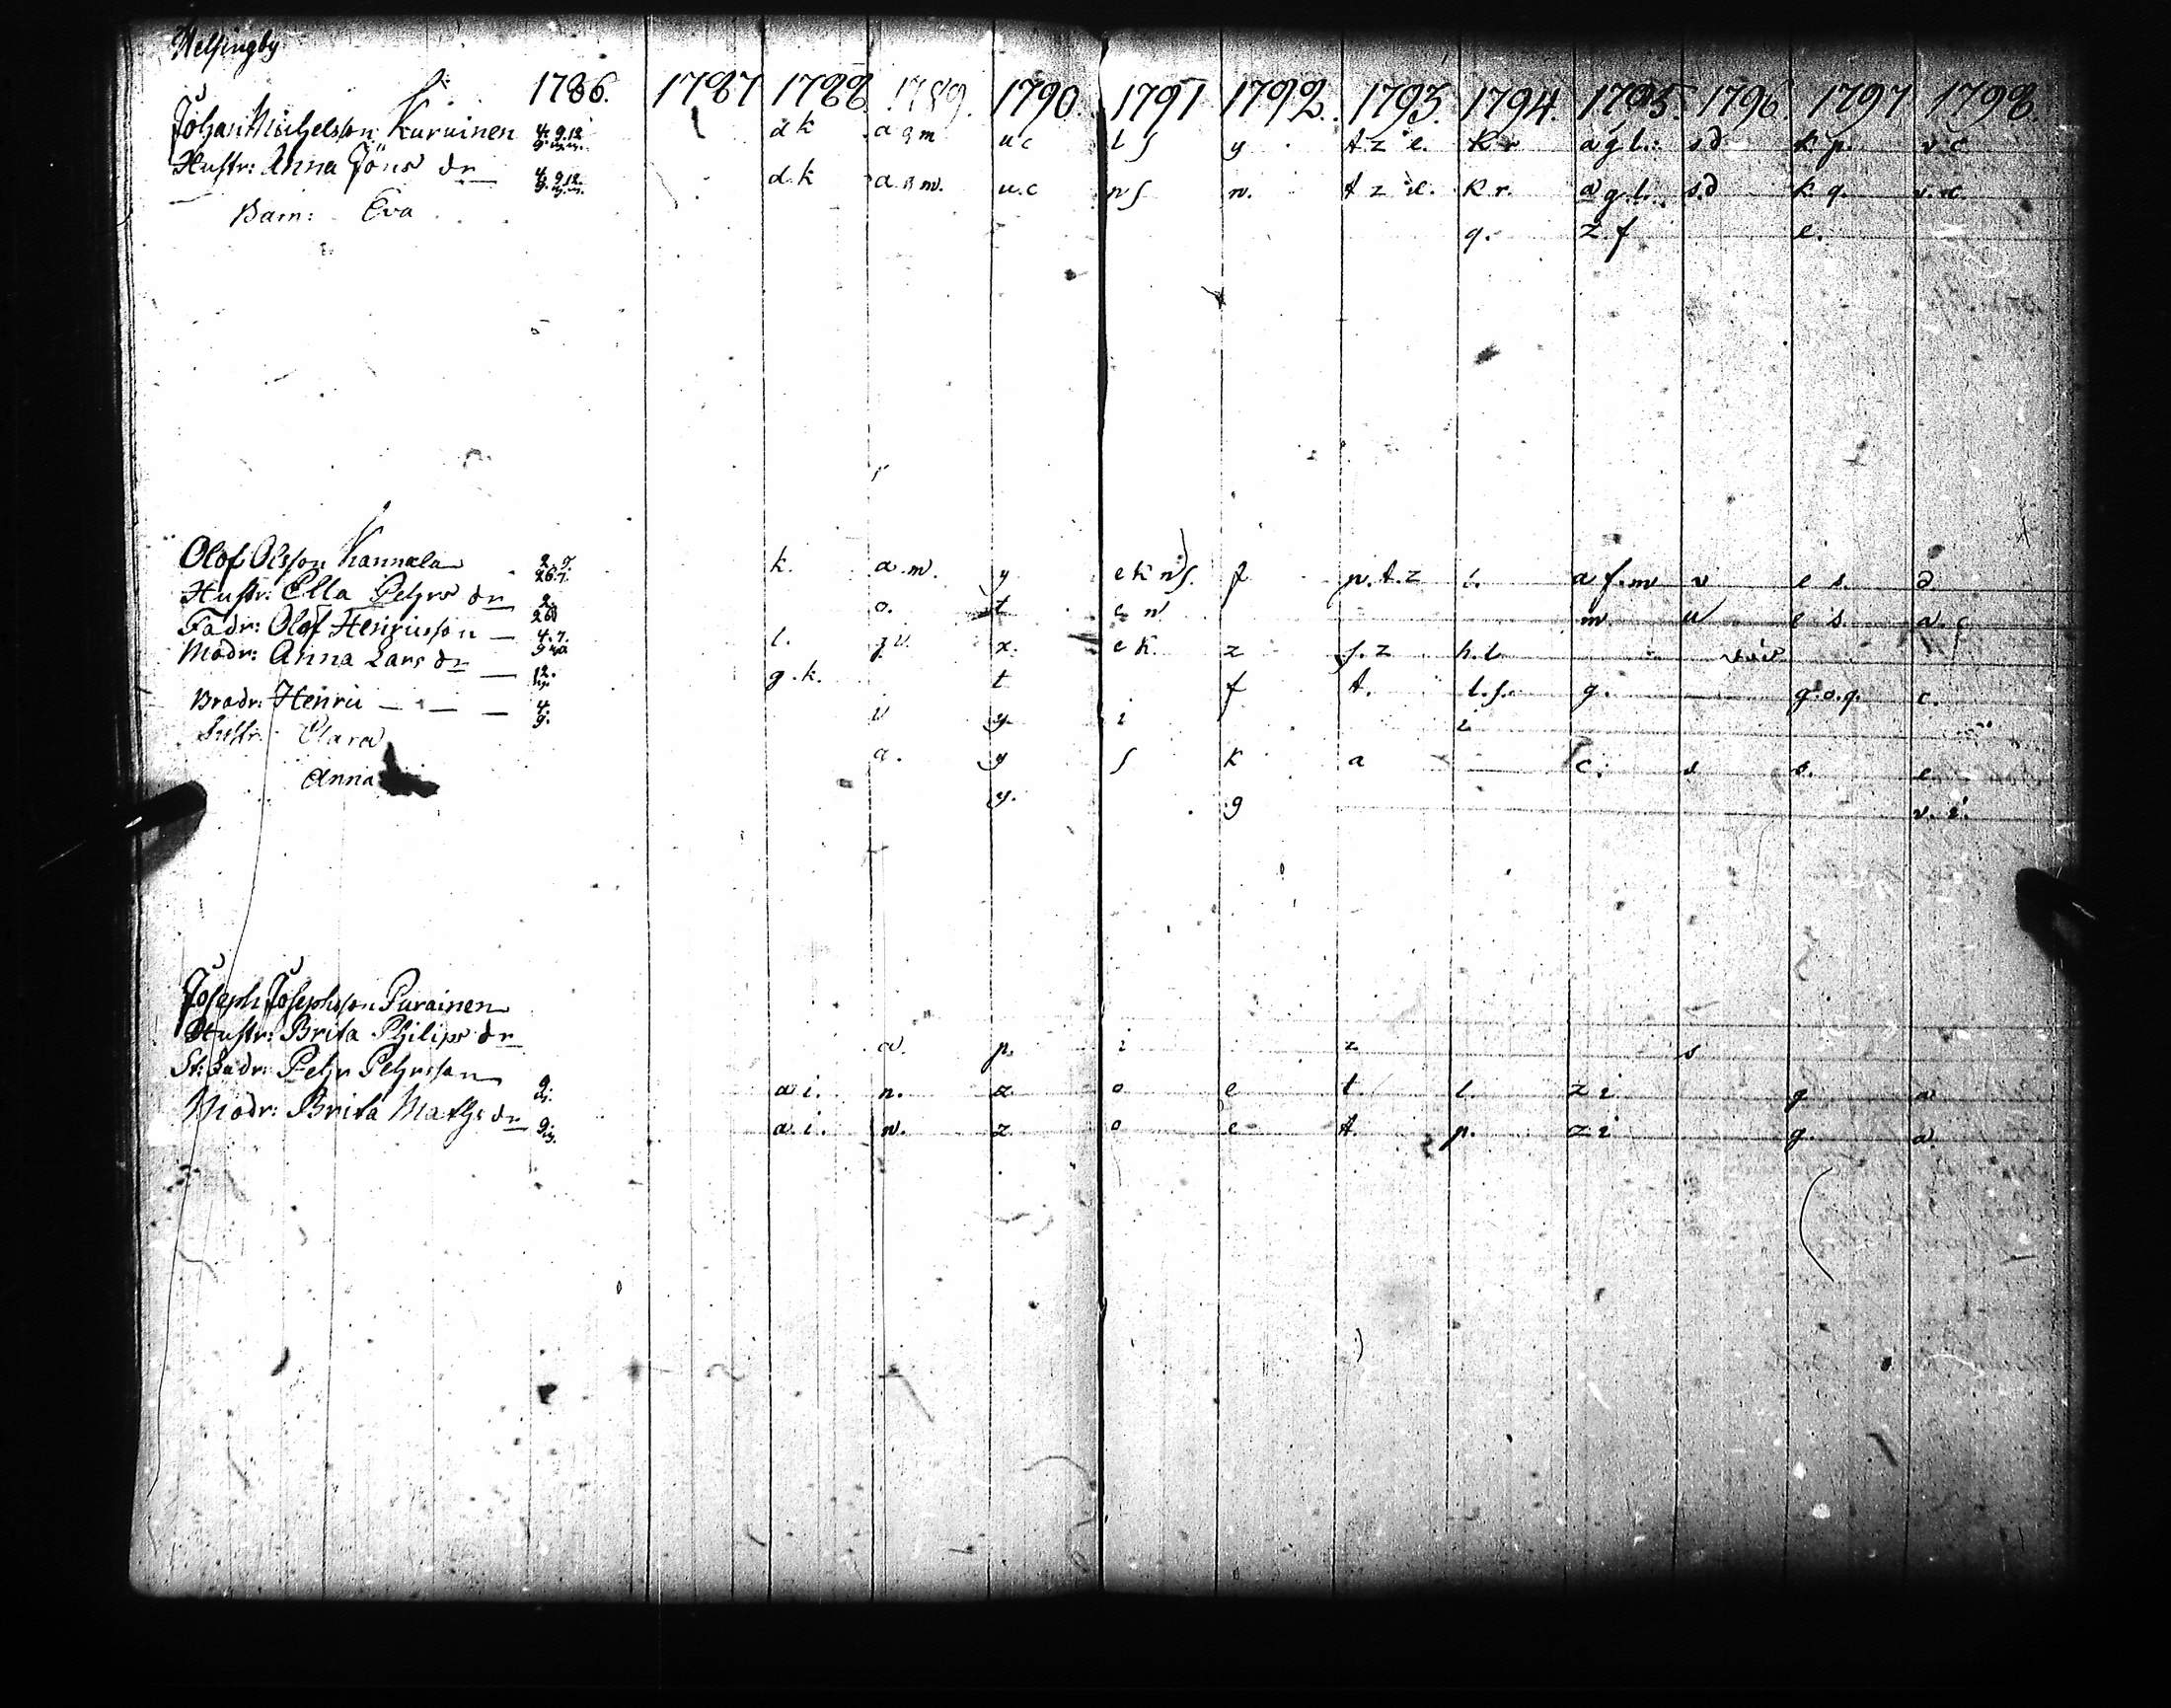 Helsingby
1786. 1787 1788 1789. 1790. 1791 1792. 1793. 1794. 1795. 1796. 1797 1798.
Johan Michelsson Kuruinen 4. 9. 12 d k a q m u c l s y . t z e. k r a g l. s d k p. v c
Hustr: Anna Jöns dr 4. 9. 12. d. k a. n m. u. c n s n. t z e. k r. a g. l. s. d k. q. v. c.
Barn: Eva q. z. f e.
Olof Olsson Kannala 2. 7. k. a. m. y e k n s. f n. t. z l. a f. m v e s. d
Hustr: Ella Pehrs dr 2. o. t e n m u e s. a. c
Fadr: Olof Henricsson — 4. 7. l. x. e k. z s. z h. l
Modr: Anna Lars dr — 12. g. k. t f t. l. s. g. g. o. q. c.
Brodr: Henric — — — 4. v y i i
Sustr: Clara a. y s k a c. s s. e
Anna y. g v. i.
Joseph Josephsson Purainen
Hustr: Brita Philips dr a. p. i z s
St: Fadr: Pehr Pehrsson 9. a i. n. z o e t l. z i g a
Modr: Brita Maths dr 9. a. i. n. z o e t. p. z i g. a